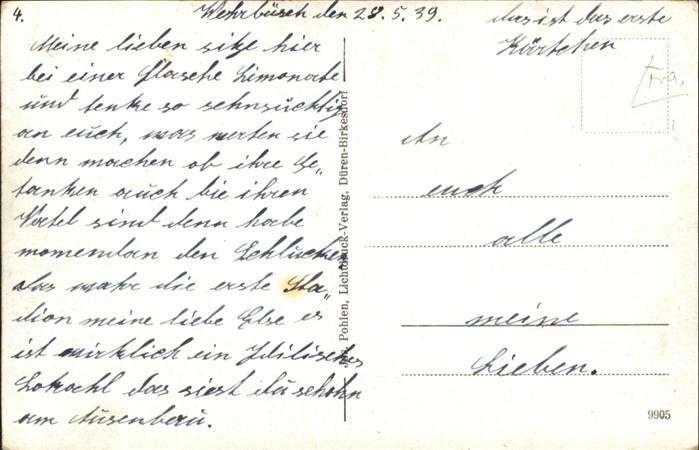 4.
Wehrbüsch den 28.5.39.
das ist das erste
Kärtchen
Meine lieben sitze hier
bei einer Flasche Limonate
und tenke so sehnsüchtig
an euch, was werten sie
denn machen ob ihre Ge„
tanken auch bie ihren
Vatel sind denn habe
momendan den Schlucken
das wahr die erste Sta„
dion meine liebe Else es
ist wirklich ein Idilisches
Lokahl das siest du schohn
am Ausenbau.
Jos. Pohlen, Lichtdruck-Verlag, Düren-Birkesdorf
An
euch
alle
meine
Lieben.
9905